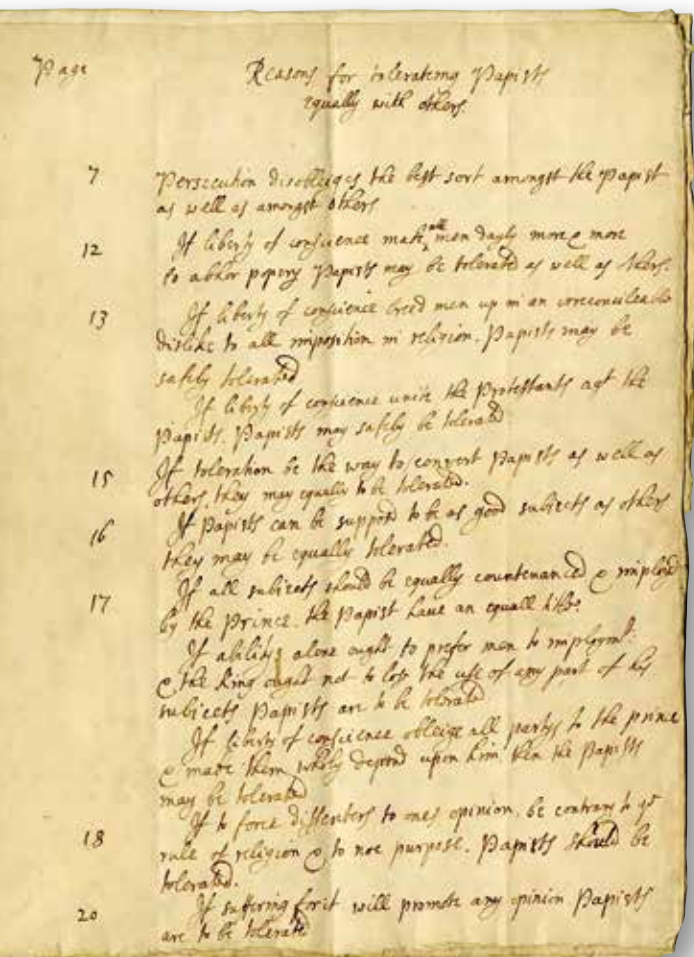 Page Reasons for tolerateing Papists
equally with others.
7 Persecution disobleiges the best sort amongst the Papist
as well as amongst others
12 If liberty of conscience make all men dayly more & more
to abhor popery Papists may be tolerated as well as others.
13 If liberty of conscience breed men up in an irreconcileable
dislike to all imposition in religion. Papists may be
safely tolerated
If liberty of conscience unite the Protestants agt the
Papists. Papists may safely be tolerated
15 If toleration be the way to convert Papists as well as
others, they may equally to be tolerated.
16 If Papists can be supposd to be as good subiects as others
they may be equally tolerated.
17 If all subiects should be equally countenanced & imploid
by the Prince. the Papist have an equall title.
If abilitys alone ought to prefer men to imploymt.
& the King ought not to lose the use of any part of his
subiects Papists are to be tolerated
If liberty of conscience obleige all partys to the prince
& make them wholy depend upon him then the Papists
may be tolerated
18 If to force dissenters to ones opinion, be contrary to ye
rule of religion & to noe purpose. Papists should be
tolerated.
20 If suffering for it will promote any opinion Papists
are to be tolerated